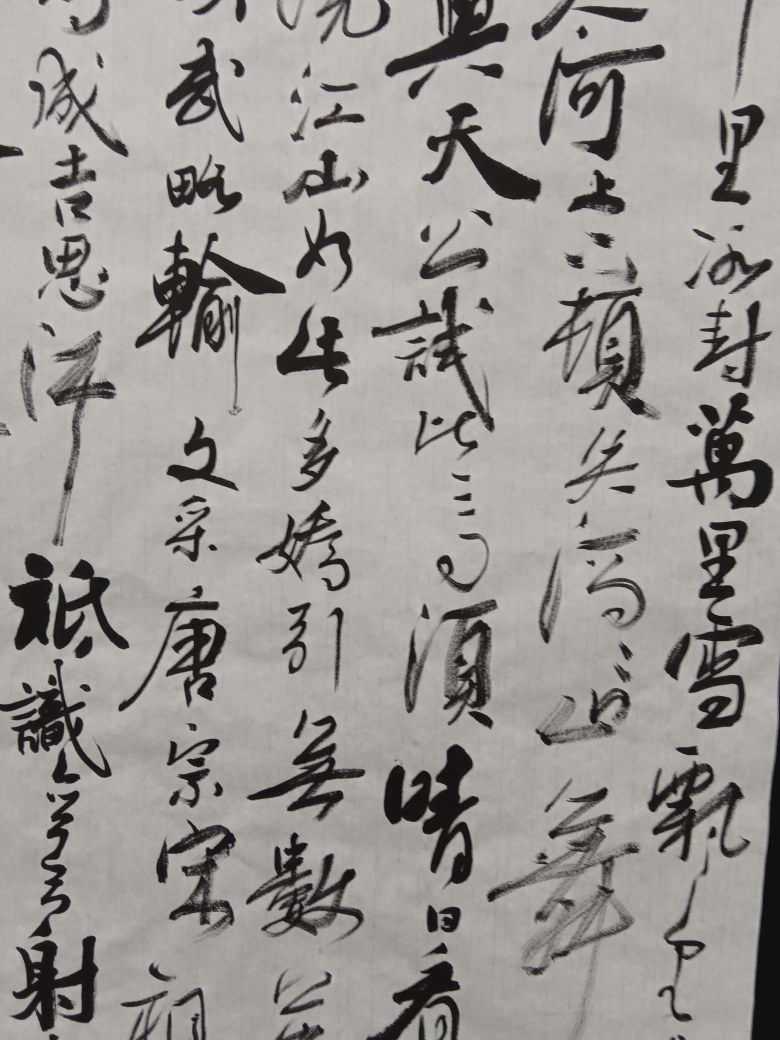 里冰封萬里雪飄望
大河上下頓失滔〻山舞
與天公試比高須晴日看
江山如此多嬌引無數英
武略輸文采唐宗宋祖
成吉思汗祇識彎弓射